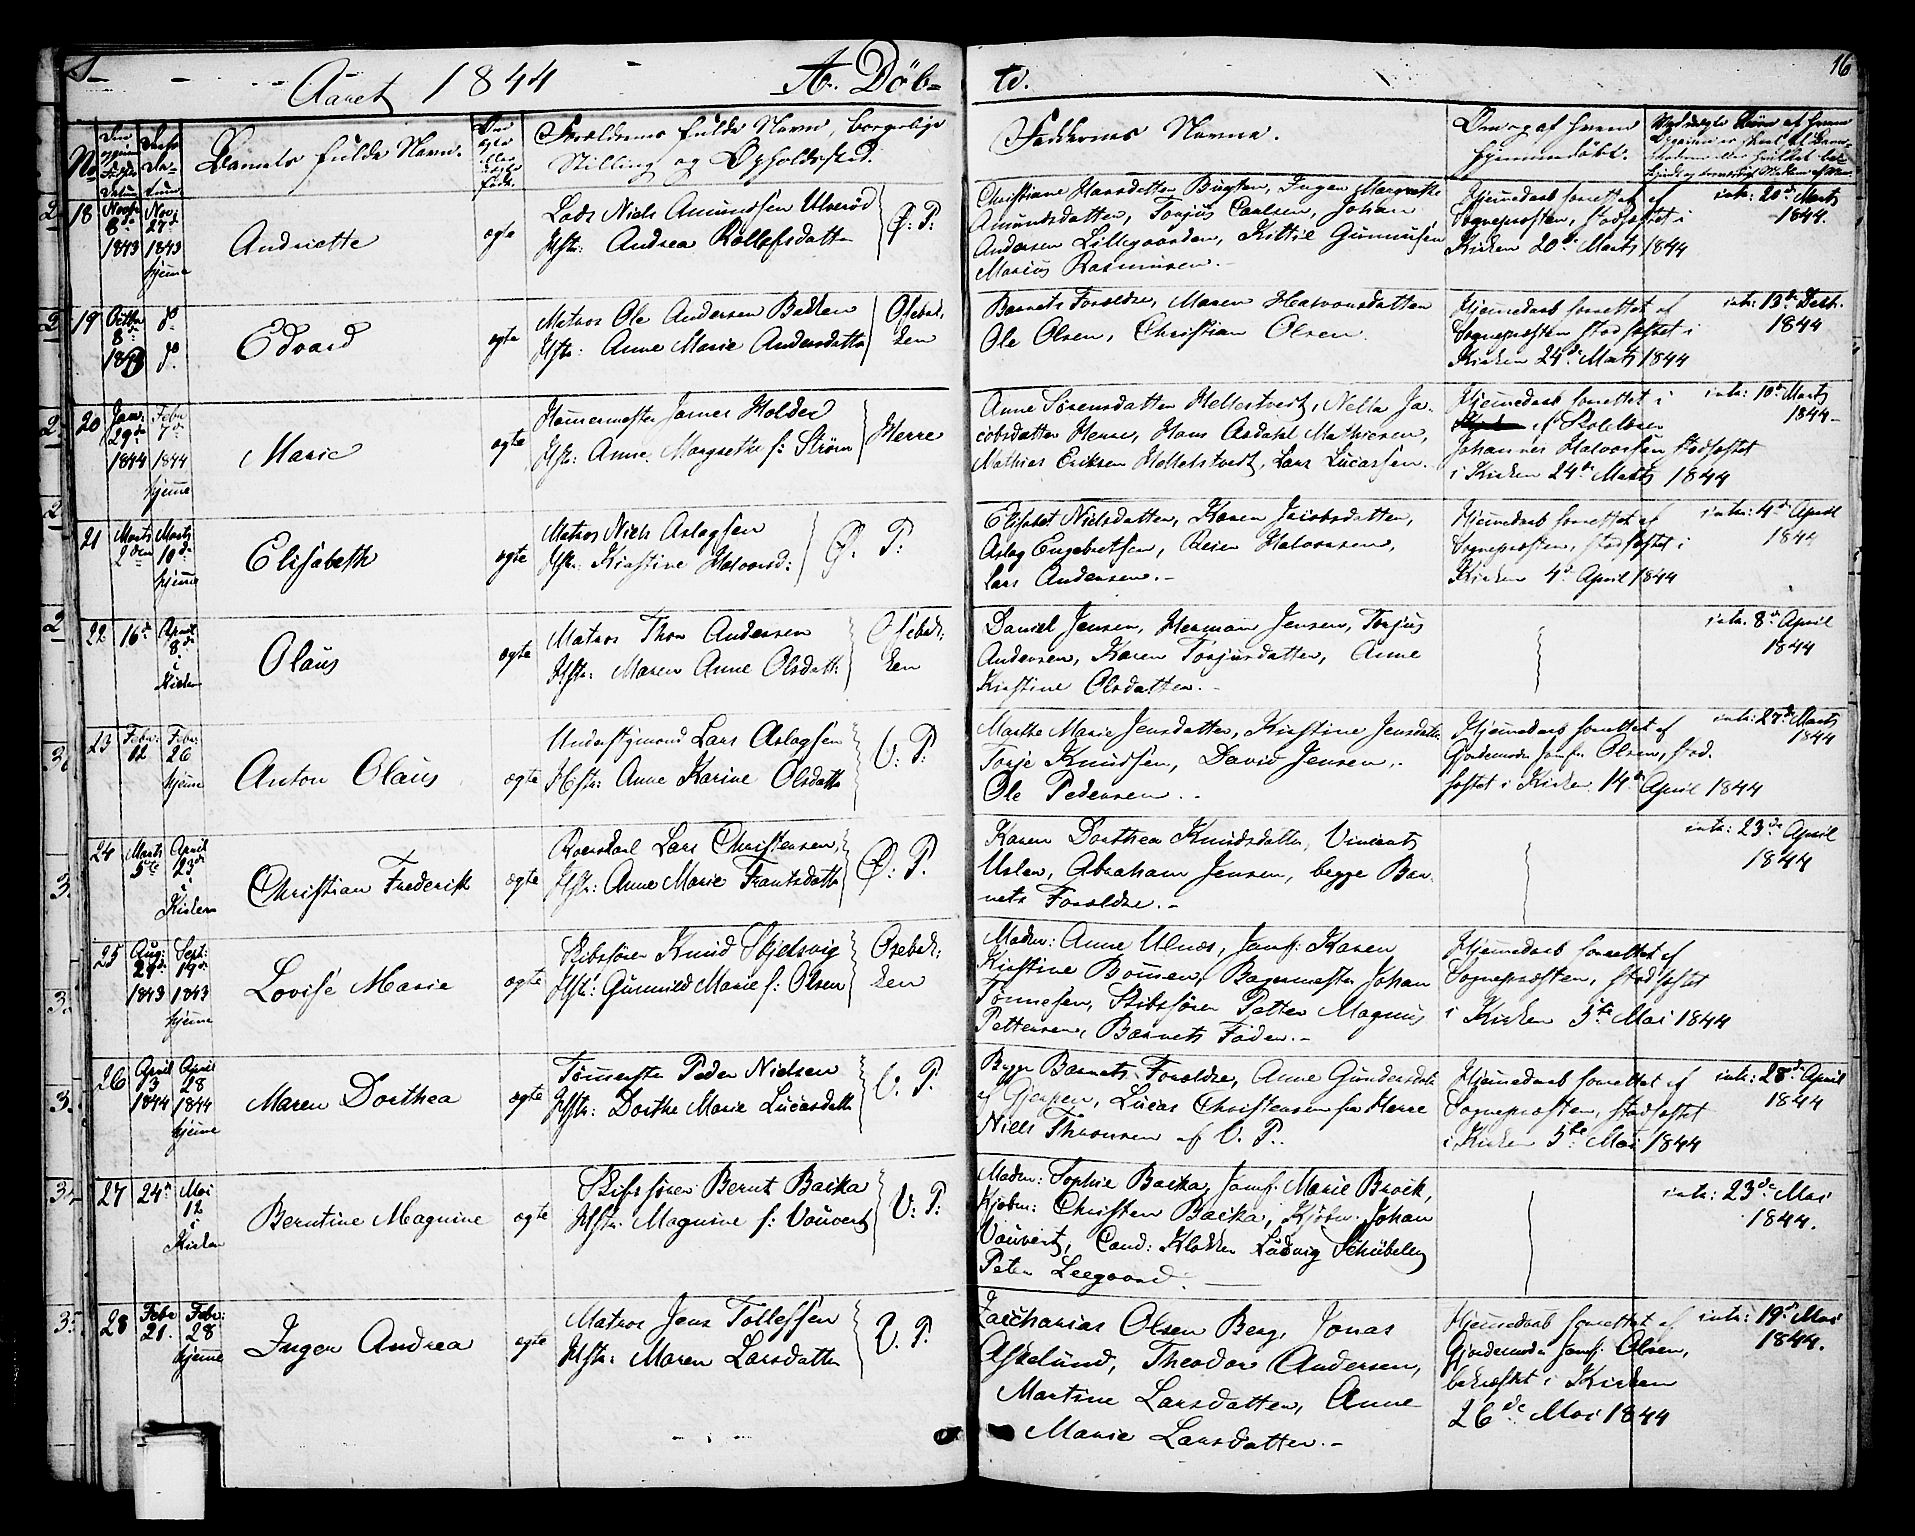 Aaret 1844 A. Døb-
te.
16
No
Barnets fulde Navn.
Forældrenes fulde Navn, borgerlige
Stilling og Opholdssted.
Faddernes Navne.
Om og af hvem
hjemmedøbt.
18
Novbr
8de
1843
Nov:
27de
1843
hjeme
Andriette
ægte
Lods Niels Amundsen Ulverød
Hstr: Andrea Rollefsdatter
Ø: P:
Christiane Hansdatter Bugten, Inger Margrethe
Amundsdatter, Torjus Carlsen, Johan
Andersen Lillegaarden, Kittil Gunnusen
Marius Rasmusen.-
Hjemedaab forrettet af
Sognepræsten, stadfæstet i
Kirken 20de Marts 1844
intr: 20de Marts
1844.
19
Octbr
8de
1843
do
do
Edvard
ægte
Matros Ole Andersen Bedten
Hstr: Anne Marie Andersdatter
Osebak:
ken
Barnets Forældre, Maren Halvorsdatter
Ole Olsen, Christian Olsen.
Hjemedaab forrettet af
Sognepræsten stadfæstet i
Kirken 24de Marts 1844
intr: 13de Decbr.
1844
20
Janr
29de
1844
Febr
7de
1844
hjeme
Marie
ægte
Hammermester James Holder
Hstr: Anne Margrethe f: Strøm
Herre
Anne Sørensdatter Hellestvedt, Nella Ja-
cobsdatter Herre, Hans Asdahl Mathiesen,
Mathias Eriksen Hellestvedt, Lars Lucassen.
Hjemedaab forrettet i
af Skolelærer
Johannes Halvorsen stadfæstet
i Kirken 24de Marts 1844
intr: 10de Marts
1844-
21
Marts
2den
Marts
10de
hjeme
Elisabeth
ægte
Matros Niels Aslagsen
Hstr: Kirstine Halvorsd:
Ø: P:
Elisabet Nielsdatter, Karen Jacobsdatter,
Aslag Engebretsen, Reier Halvorsen,
Lars Andersen.-
Hjemedaab forrettet af
Sognepræsten, stadfæstet i
Kirken 4de April 1844
intr: 4de April
1844
22
16de
April
8de
i
Kirken
Olaus
ægte
Matros Thor Andersen
Hstr: Maren Anne Olsdatt:
Osebak:
ken
Daniel Jensen, Herman Jensen, Torjus
Andersen, Karen Torjusdatter, Anne
Kirstine Olsdatter.-
intr. 8de April
1844
23
Febr:
12
Febr:
26
hjeme
Anton Olaus
ægte
Understyrmand Lars Aslagsen
Hstr: Anne Karine Olsdatter
V: P:
Marthe Marie Jensdatter, Kirstine Jensdatter
Torje Knudsen, David Jensen,
Ole Pedersen.-
Hjemedaab forrettet af
Gjordemoder Jomfr. Olsen, stad-
fæstet i Kirken 14de April 1844
intr: 27de Marts
1844
24
Marts
5te
April
23de
i
Kirken
Christian Frederik
ægte
Roerskarl Lars Christensen,
Hstr: Anne Marie Frantsdatter
Ø: P.
Karen Dorthea Knudsdatter, Vincents
Uslen, Abraham Jensen, begge Bar-
nets Forældre.-
intr: 23de April
1844
25
Aug:
29de
1843
Sept:
19de
1843
hjeme
Lovise Marie
ægte
Skibsfører Knud Skjelsvig
Hstr: Gunnild Marie f: Olsen
Osebak:
ken
Madm: Anne Ulnæs, Jomf: Karen
Kirstine Bomsen, Bagermester Johan
Tønnesen, Skibsfører Petter Magnus
Pettersen, Barnets Fader.-
Hjemedaab forrettet af
Sognepræsten, stadfæstet
i Kirken 5te Mai 1844
26
April
13
1844
April
28
1844
hjeme
Maren Dorthea
ægte
Tømmerstr Peder Nielsen
Hstr: Dorthe Marie Lucasdatter
V. P.
Begge Barnets Forældre, Anne Gundersdatter
af Gjerpen, Lucas Christensen fra Herre
Niels Thronsen af V. P..
Hjemedaab forrettet af
Sognepræsten, stadfæstet
i Kirken 5te Mai 1844
intr: 28de April
1844
27
24de
Mai
12
i
Kirken
Berntine Magnine
ægte
Skibsfører Bernt Backa
Hstr: Magnine f: Vauvert
V: P:
Madm: Sophie Backa, Jomf: Marie Brock,
Kjøbm: Christen Backa, Kjøbm: Johan
Vauvert, Cand: Klokker Ludvig Schübeler
Peter Leegaard.
intr: 23de Mai
1844.
28
Febr
21.
Febr:
28
hjeme
Inger Andrea
ægte
Matros Jens Tollefsen
Hstr: Maren Larsdatter
V. P.
Zaccharias Olsen Berg, Jonas
Askelund, Theodor Andersen,
Martine Larsdatter, Anne
Marie Larsdatter.-
Hjemedaab forrettet af
Gjordemoder Jomf: Olsen,
bekræftet i Kirken
26de Mai 1844
intr: 19de Mai
1844.